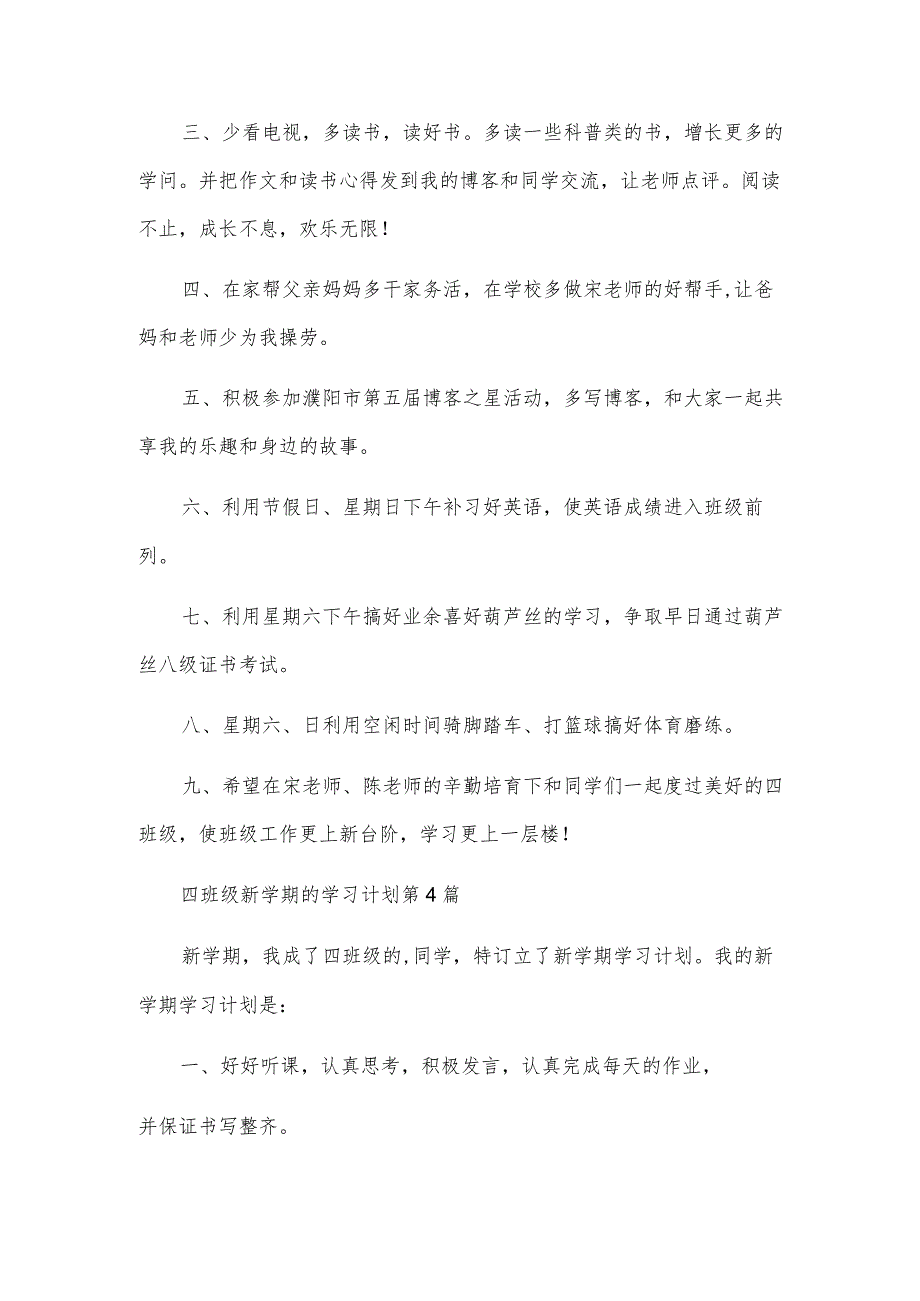 三、少看电视，多读书，读好书。多读一些科普类的书，增长更多的
学问。并把作文和读书心得发到我的博客和同学交流，让老师点评。阅读
不止，成长不息，欢乐无限！
四、在家帮父亲妈妈多干家务活，在学校多做宋老师的好帮手,让爸
妈和老师少为我操劳。
五、积极参加濮阳市第五届博客之星活动，多写博客，和大家一起共
享我的乐趣和身边的故事。
六、利用节假日、星期日下午补习好英语，使英语成绩进入班级前
列。
七、利用星期六下午搞好业余喜好葫芦丝的学习，争取早日通过葫芦
丝八级证书考试。
八、星期六、日利用空闲时间骑脚踏车、打篮球搞好体育磨练。
九、希望在宋老师、陈老师的辛勤培育下和同学们一起度过美好的四
班级，使班级工作更上新台阶，学习更上一层楼！
四班级新学期的学习计划第 4 篇
新学期，我成了四班级的,同学，特订立了新学期学习计划。我的新
学期学习计划是：
一、好好听课，认真思考，积极发言，认真完成每天的作业，
并保证书写整齐。